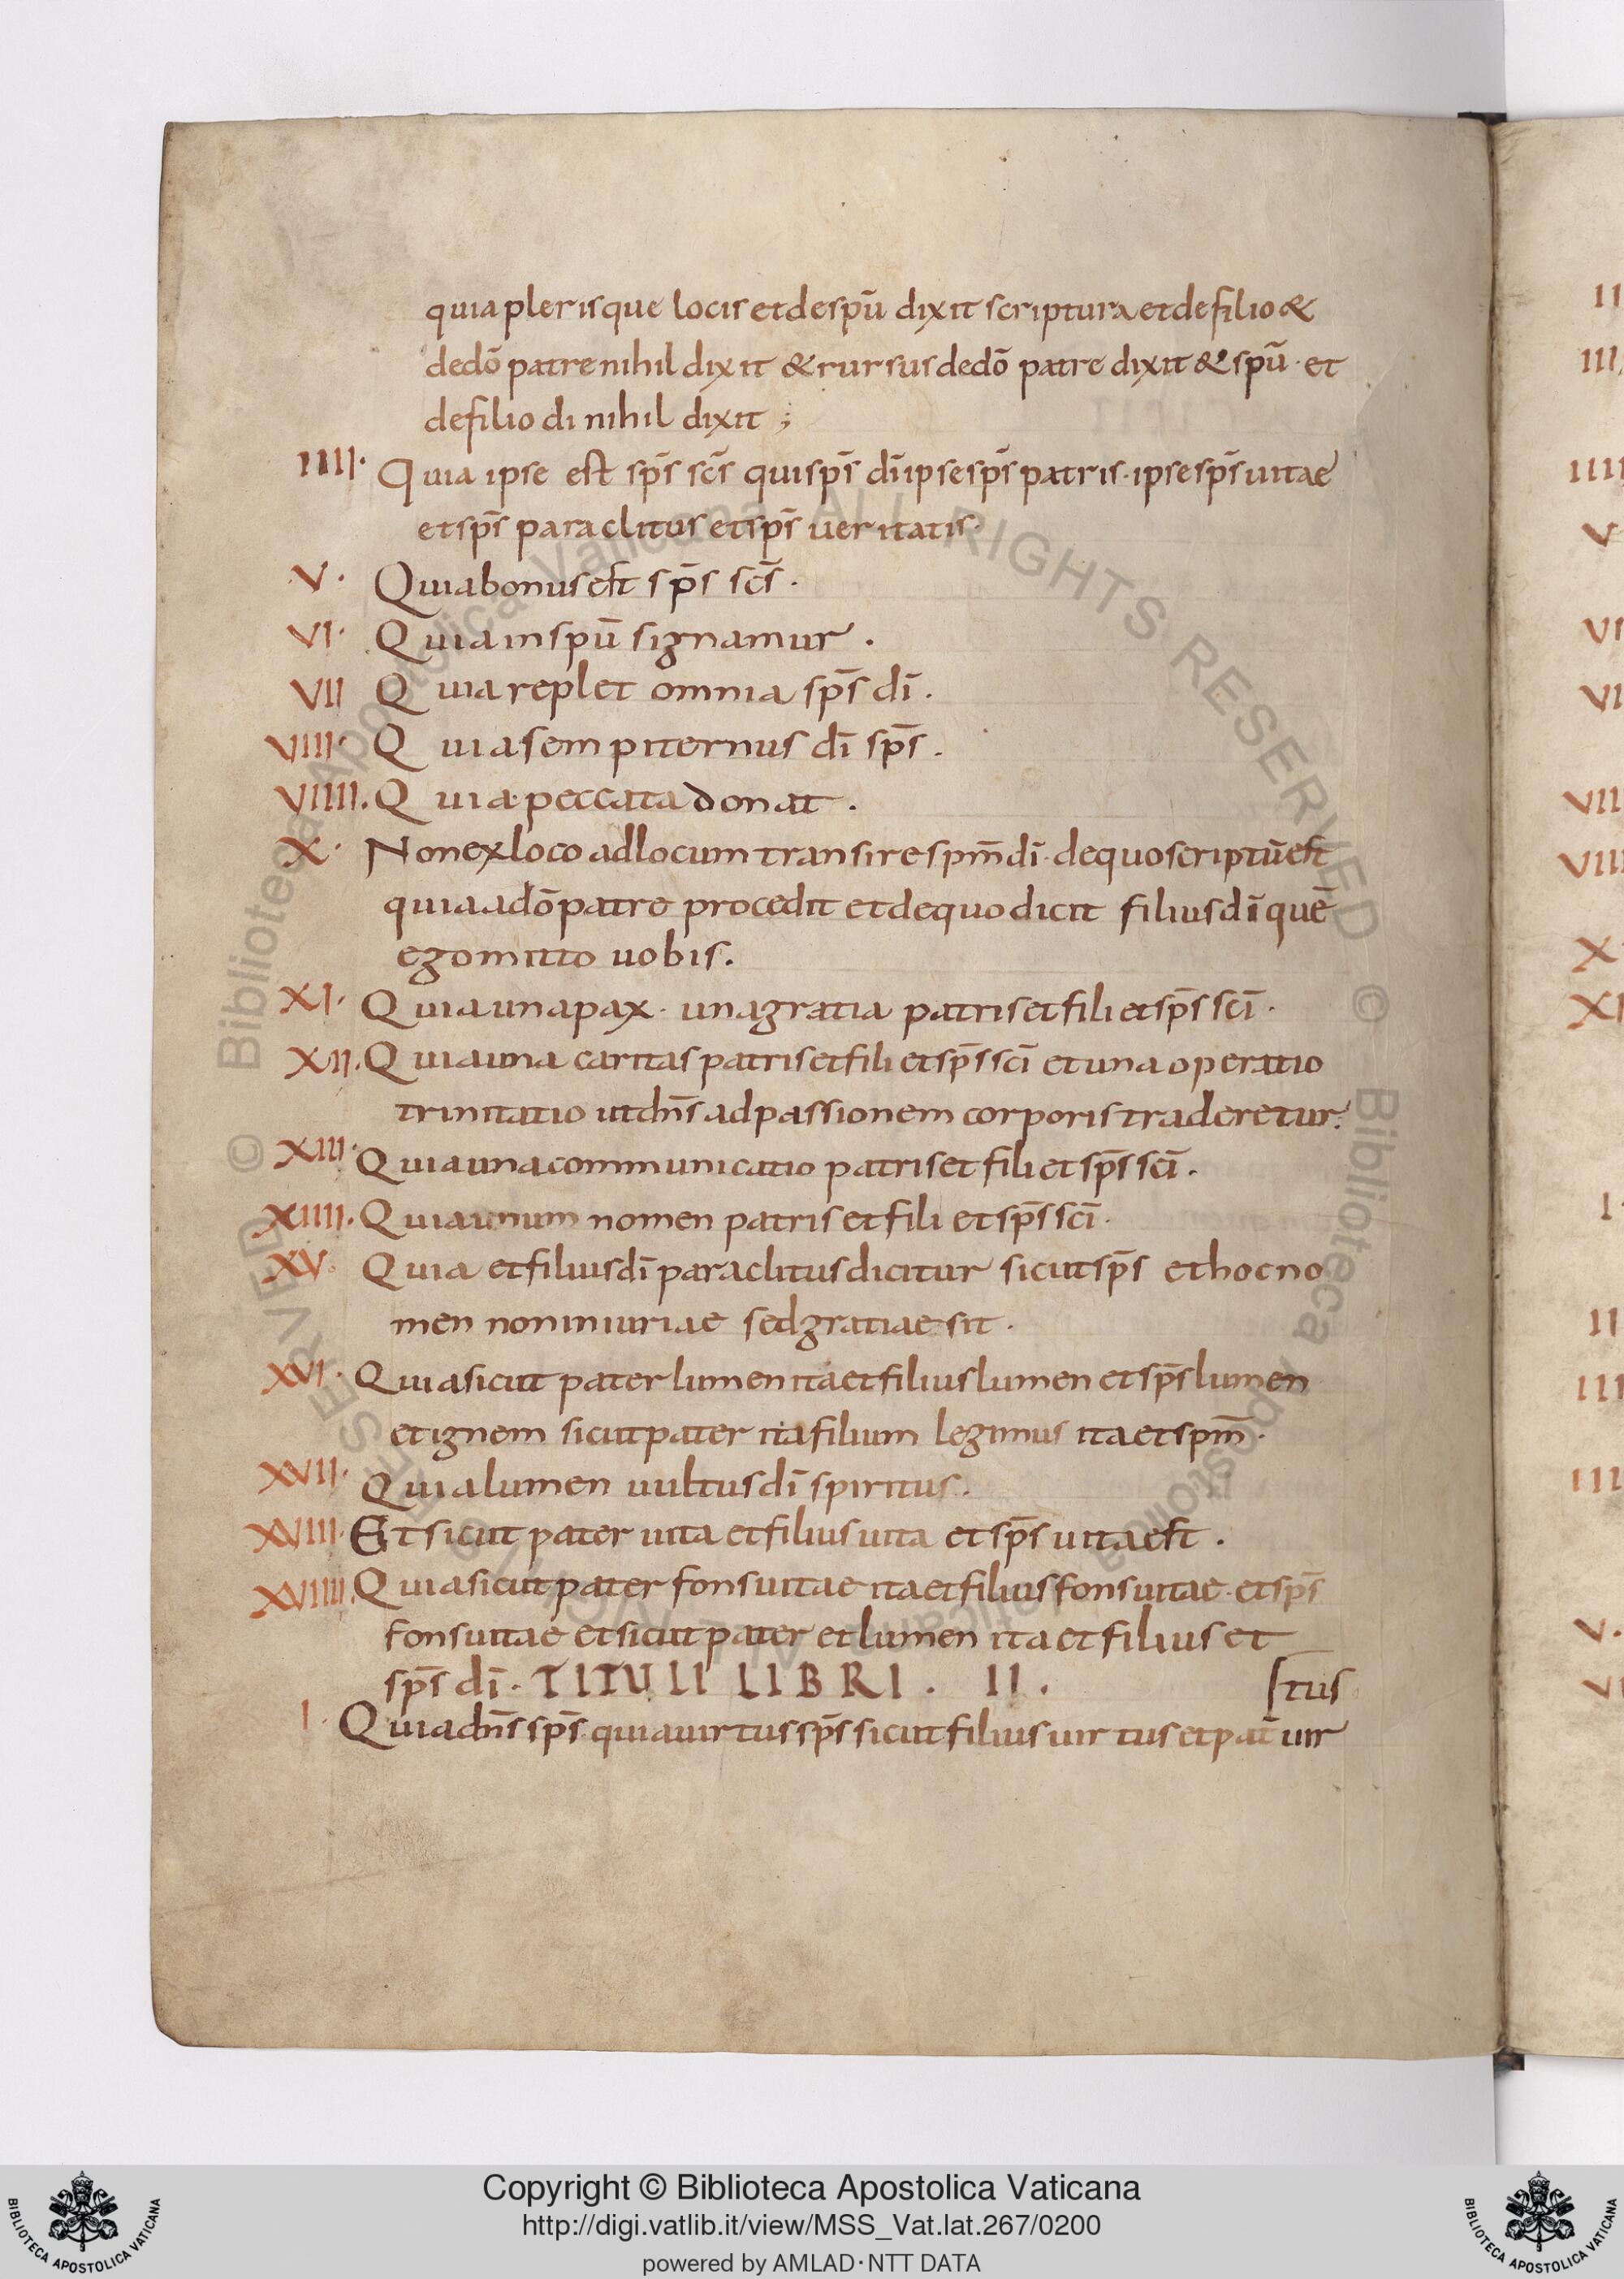 quia plerisque locis et de spū dixit scriptura et de filio &
de dō patre nihil dixit & rursus de dō patre dixit & spū · et
de filio di nihil dixit ;
IIII· Quia ipse est sp̄s sc̄s qui sp̄s dī ipse sp̄s patris · ipse sp̄s uitae
et sp̄s paraclitus et sp̄s ueritatis ·
·V· Quia bonus est sp̄s sc̄s ·
VI· Quia in spū signamur .
VII Quia replet omnia sp̄s dī .
VIII· Quia sempiternus dī sp̄s .
VIIII. Quia peccata donat .
X· Non ex loco ad locum transire spm̄ dī · de quo scriptū est
quia a dō patre procedit et de quo dicit filius dī quē
ego mitto uobis .
XI· Quia una pax · una gratia patris et fili et sp̄s scī ·
XII. Quia una caritas patris et fili et sp̄s scī et una operatio
trinitatio ut dn̄s ad passionem corporis traderetur.
XIII· Quia una communicatio patris et fili et sp̄s scī .
XIIII. Quia unum nomen patris et fili et sp̄s scī ·
XV· Quia et filius dī paraclitus dicitur sicut sp̄s et hoc no
men non iniuriae sed gratiae sit .
XVI· Quia sicut pater lumen ita et filius lumen et sp̄s lumen
et ignem sicut pater ita filium legimus ita et spm̄ ·
XVII· Quia lumen uultus dī spiritus .
XVIII· Et sicut pater uita et filius uita et sp̄s uita est .
XVIIII. Quia sicut pater fons uitae ita et filius fons uitae · et sp̄s
fons uitae et sicut pater et lumen ita et filius et
sp̄s dī · TITULI LIBRI . II . tus
I· Quia dn̄s sp̄s · quia uirtus sp̄s sicut filius uirtus et pat̄ uir
II
III
IIII
V
VI
VII
VIII
X
XI
I
II
III
IIII
V.
VI
© Biblioteca Apostolica Vaticana ALL RIGHTS RESERVED © Biblioteca Apostolica Vaticana ALL RIGHTS RESERVED
Copyright © Biblioteca Apostolica Vaticana
http://digi.vatlib.it/view/MSS_Vat.lat.267/0200
powered by AMLAD · NTT DATA
BIBLIOTECA APOSTOLICA VATICANA
BIBLIOTECA APOSTOLICA VATICANA